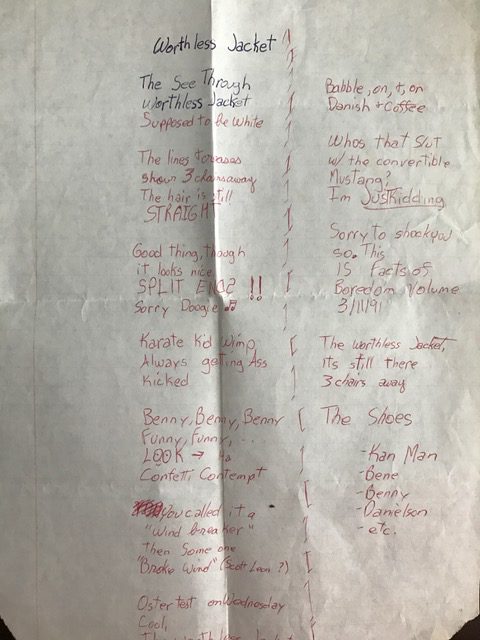 Worthless Jacket
The See Through
Worthless Jacket
Supposed to be white
The lines + creases
show 3 chairs away
The hair is still
STRAIGHT
Good thing, though
it looks nice
SPLIT ENDZ !!
Sorry Doogie ♫
Karate Kid wimp
Always getting Ass
Kicked
Benny, Benny, Benny
Funny, Funny, ...
LOOK → Ha
Confetti Contempt
You called it a
"Wind breaker"
then Some one
"Broke Wind" (Scott Leon ?)
Oster test on Wednesday
Cool,
The worthless Jacket
Babble, on, +, on
Danish + Coffee
Whos that Slut
w/ the convertible
Mustang?
Im Just Kidding
Sorry to shock you
so. This
is Facts of
Boredom Volume
3/11/91
The worthless Jacket,
its still there
3 chairs away
The Shoes
- Kan Man
- Bene
- Benny
- Danielson
- etc.